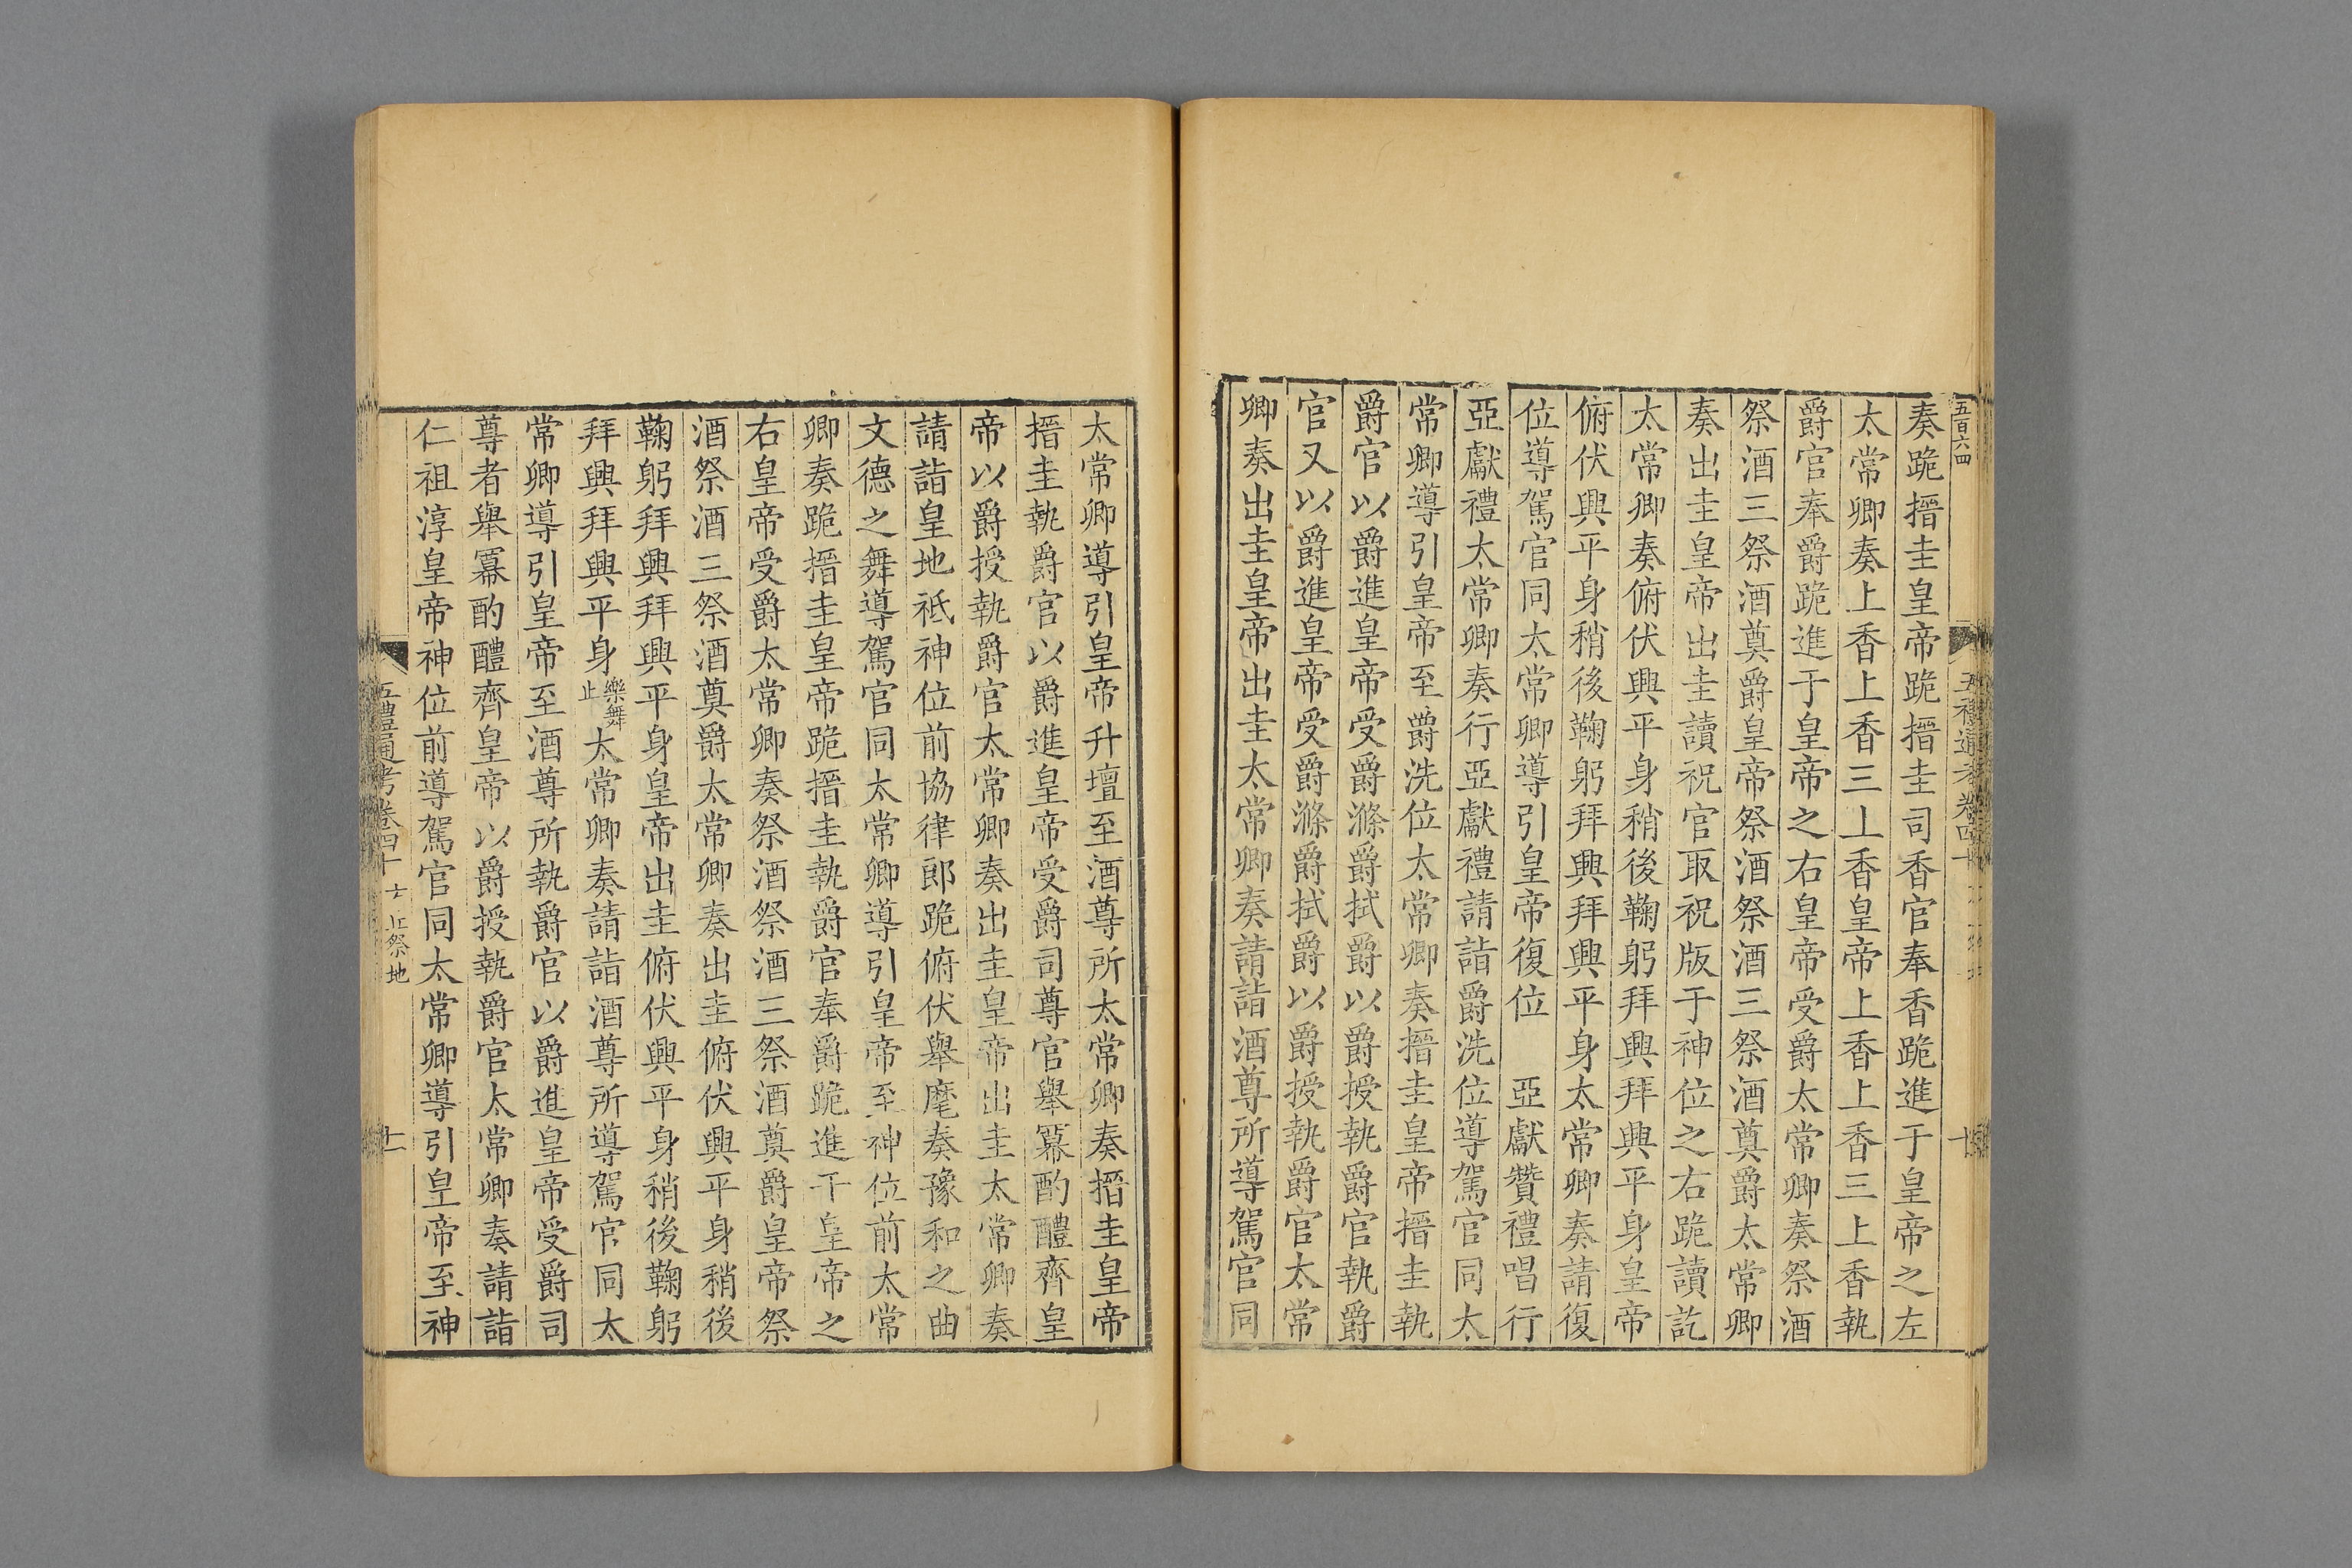 五百六四
奏跪搢圭皇帝跪搢圭司香官奉香跪進于皇帝之左
太常卿奏上香上香三上香皇帝上香上香三上香執
爵官奉爵跪進于皇帝之右皇帝受爵太常卿奏祭酒
祭酒三祭酒奠爵皇帝祭酒祭酒三祭酒奠爵太常卿
奏出圭皇帝出圭讀祝官取祝版于神位之右跪讀訖
太常卿奏俯伏興平身稍後鞠躬拜興拜興平身皇帝
俯伏興平身稍後鞠躬拜興拜興平身太常卿奏請復
位導駕官同太常卿導引皇帝復位　亞獻贊禮唱行
亞獻禮太常卿奏行亞獻禮請詣爵洗位導駕官同太
常卿導引皇帝至爵洗位太常卿奏搢圭皇帝搢圭執
爵官以爵進皇帝受爵滌爵拭爵以爵授執爵官執爵
官又以爵進皇帝受爵滌爵拭爵以爵授執爵官太常
卿奏出圭皇帝出圭太常卿奏請詣酒尊所導駕官同
太常卿導引皇帝升壇至酒尊所太常卿奏搢圭皇帝
搢圭執爵官以爵進皇帝受爵司尊官舉冪酌醴齊皇
帝以爵授執爵官太常卿奏出圭皇帝出圭太常卿奏
請詣皇地祗神位前協律郎跪俯伏舉麾奏豫和之曲
文德之舞導駕官同太常卿導引皇帝至神位前太常
卿奏跪搢圭皇帝跪搢圭執爵官奉爵跪進于皇帝之
右皇帝受爵太常卿奏祭酒祭酒三祭酒奠爵皇帝祭
酒祭酒三祭酒奠爵太常卿奏出圭俯伏興平身稍後
鞠躬拜興拜興平身皇帝出圭俯伏興平身稍後鞠躬
拜興拜興平身樂舞止太常卿奏請詣酒尊所導駕官同太
常卿導引皇帝至酒尊所執爵官以爵進皇帝受爵司
尊者舉冪酌醴齊皇帝以爵授執爵官太常卿奏請詣
仁祖淳皇帝神位前導駕官同太常卿導引皇帝至神
五禮通考卷四十
祭地